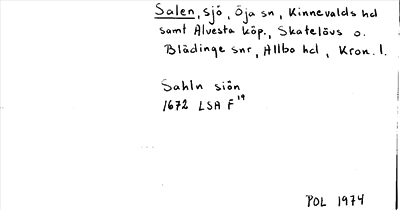 Salen, sjö, Öja sn, Kinnevalds hd
samt Alvesta köp., Skatelövs o.
Blädinge snr, Allbo hd, Kron. l.
Sahln siön
1672 LSA F¹⁹
POL 1974